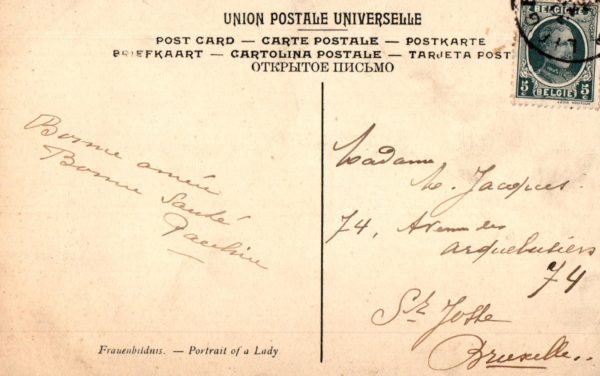 UNION POSTALE UNIVERSELLE
POST CARD — CARTE POSTALE — POSTKARTE
BRIEFKAART — CARTOLINA POSTALE — TARJETA POST
ОТКРЫТОЕ ПИСЬМО
5c 5c
BELGIE
Bonne année
Bonne Santé
Pauline
Madame
Jacques
74, Avenue des
arquebusiers
74
St Josse
Bruxelles.
Frauenbildnis. — Portrait of a Lady